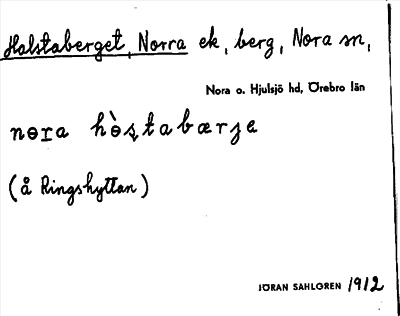 Halstaberget, Norra ek, berg, Nora sn,
Nora o. Hjulsjö hd, Örebro län
nɵra hɵ̀s̨tabærje
(å Ringshyttan)
JÖRAN SAHLGREN 1912